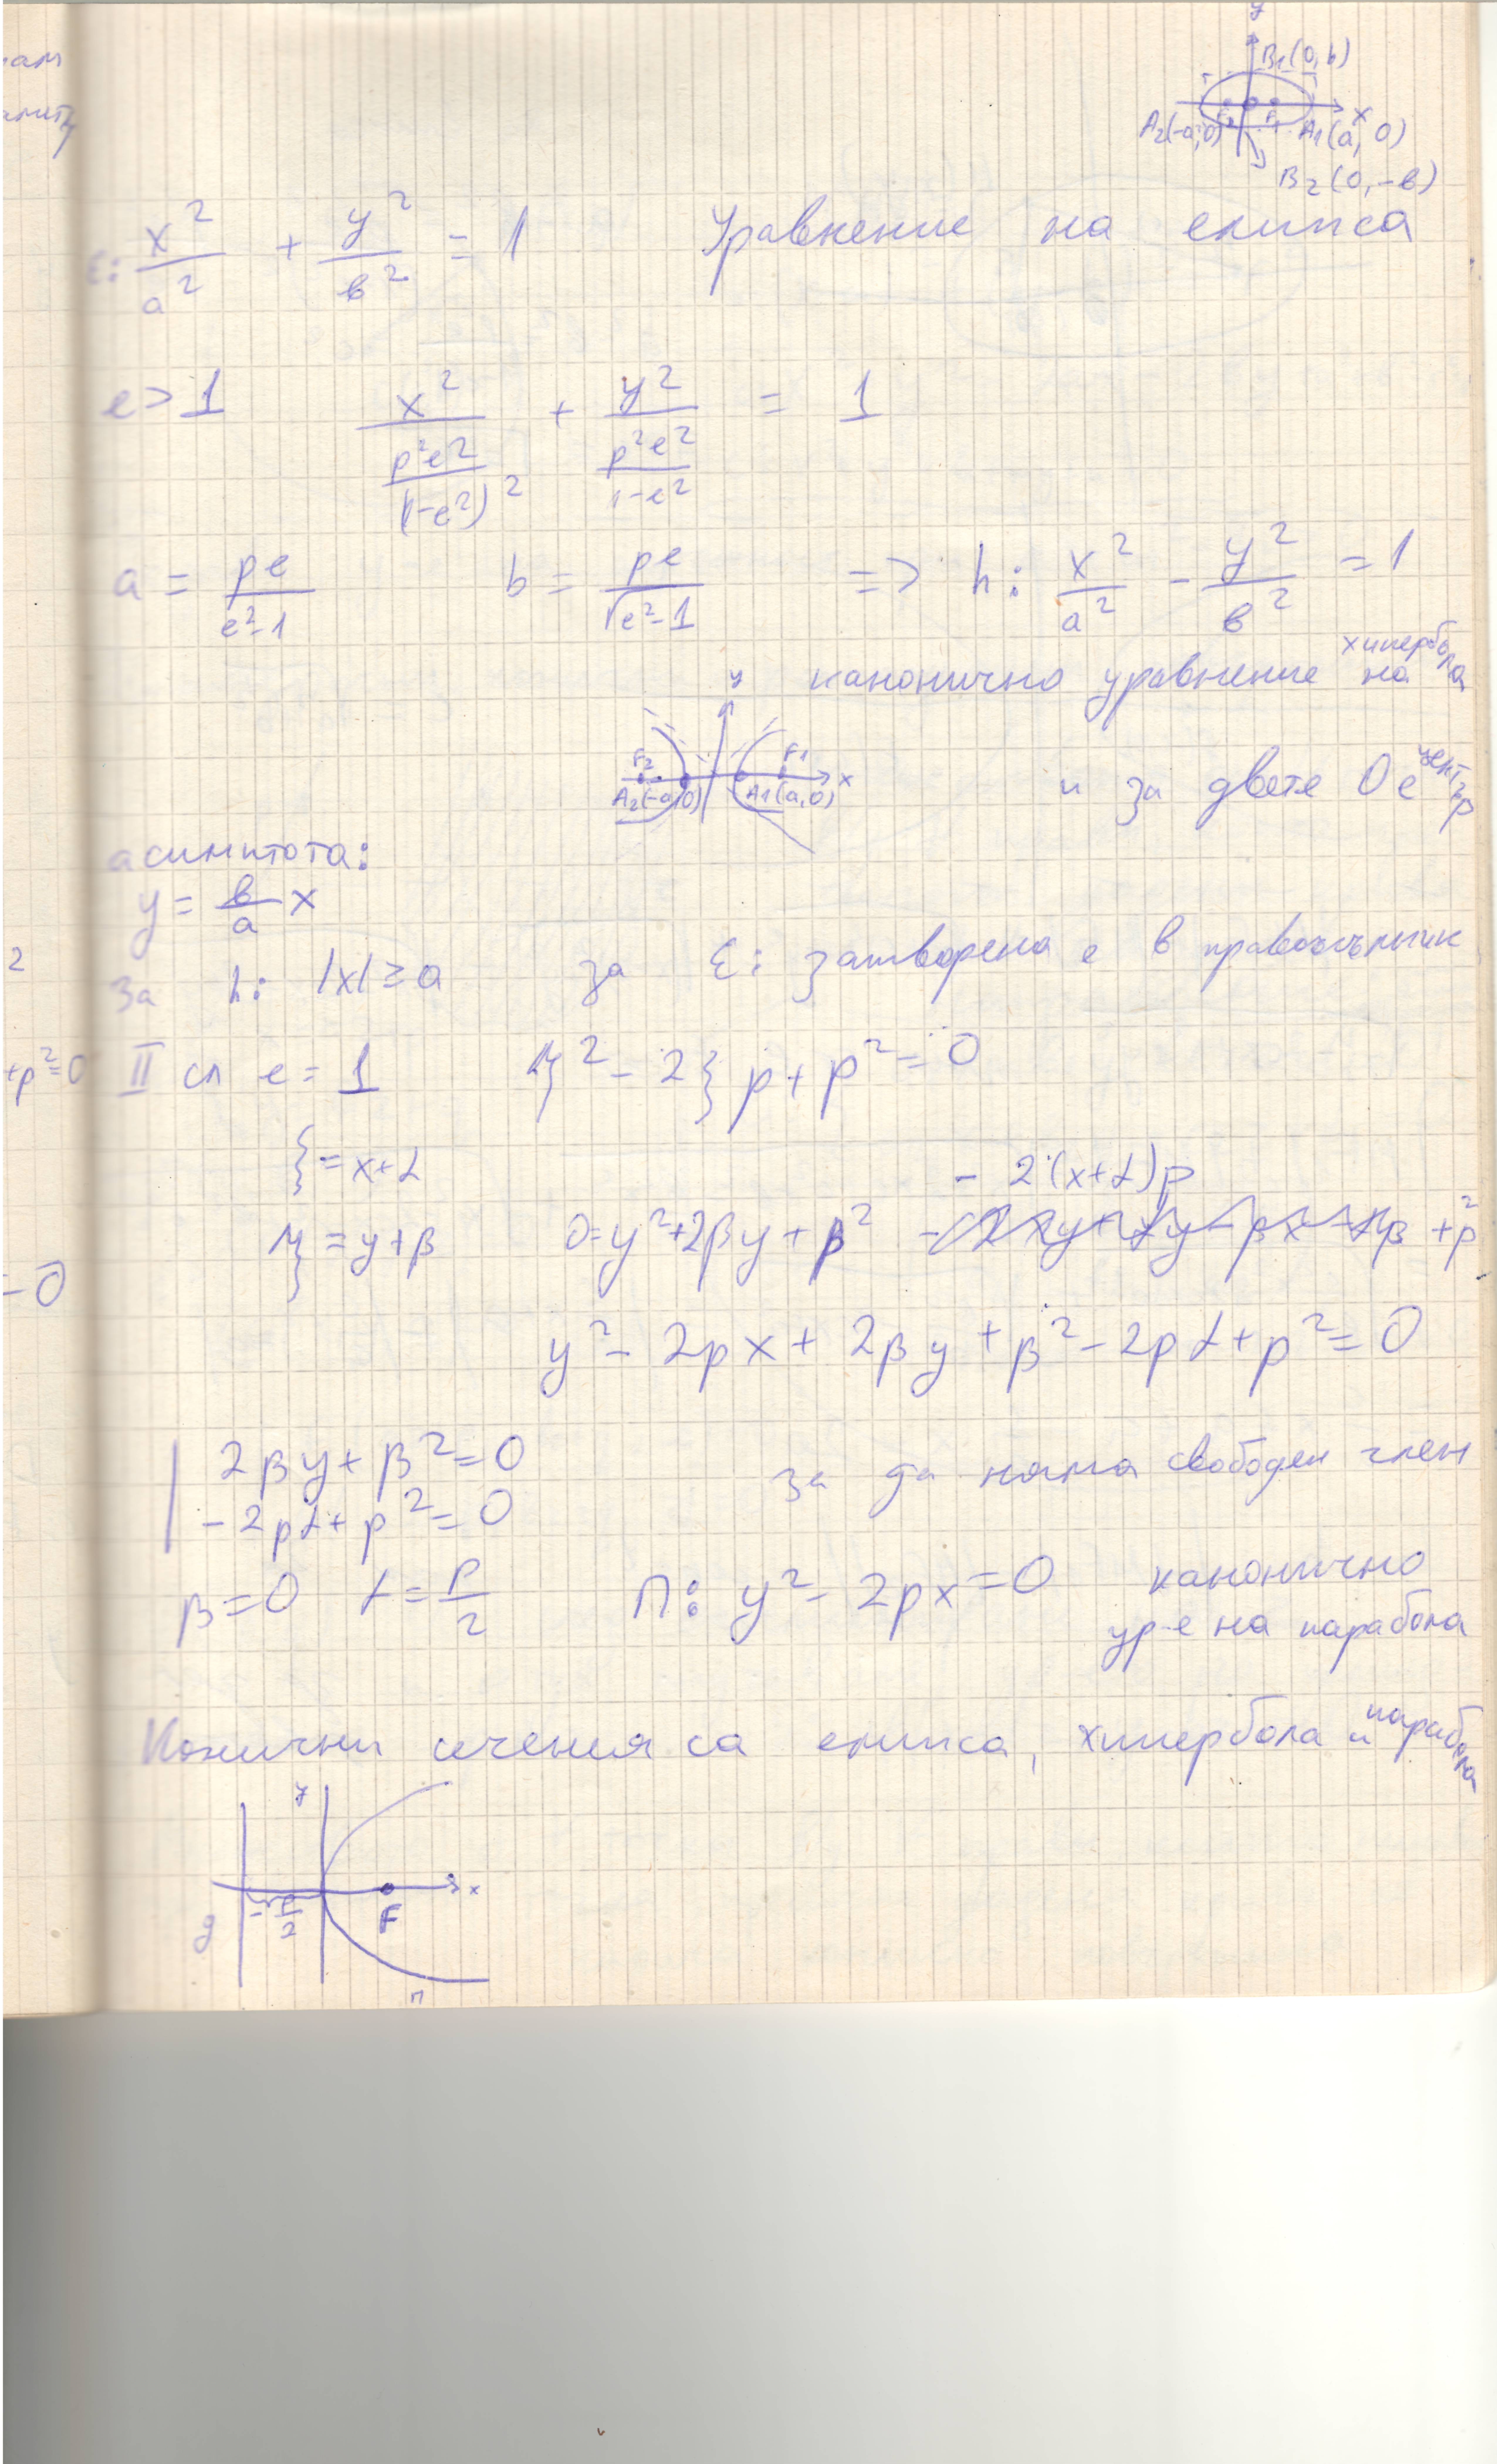 ам
y
B₁(0,b)
F₂ F₁ x
A₂(-a,0) A₁(a, 0)
B₂(0,-в)
ε: x²/a² + y²/в² = 1 Уравнение на елипса
e>1 x²/(p²e²/(1-e²)²) + y²/(p²e²/(1-e²)) = 1
a = pe/(e²-1) b = pe/√(e²-1) => h: x²/a² - y²/в² = 1
канонично уравнение на хипербола
y
F₂ F₁ x
A₂(-a,0) A₁(a,0)
и за двете O е център
асимптота:
y = в/a x
2
за h: |x|≥a за ε: затворена е в правоъгълник
+p²=0
II сл e=1 η²-2ξp+p²=0
ξ=x+α
- 2(x+α)p
η=y+β 0=y²+2βy+β² +p²
=0
y²-2px+2βy+β²-2pα+p²=0
2βy+β²=0 за да няма свободен член
-2pα+p²=0
β=0 α=p/2 П: y²-2px=0 канонично
ур-е на парабола
Конични сечения са елипса, хипербола и парабола
y
x
-p/2 F
g
П